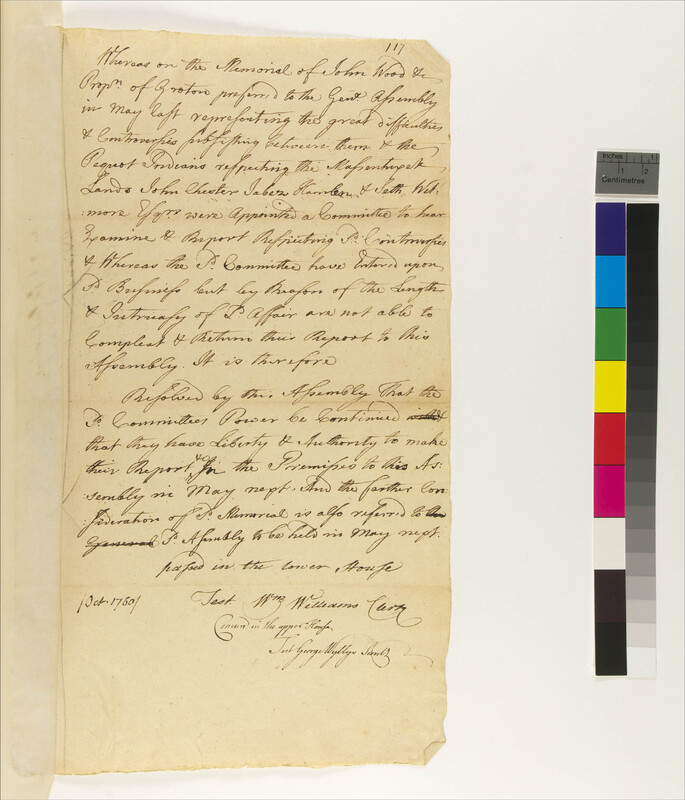 117
Whereas on the Memorial of John Wood &c
Propr. of Groton preferred to the Genl. Assembly
in May last representing the great difficulties
& Controversies subsisting between them & the
Pequot Indians respecting the
Lands John Chester Jabez Hamlin & Seth Wet-
:more Esqrs. were Appointed a Committee to hear
Examine & Report Respecting Sd. Controversies
& Whereas the Sd. Committee have Entered upon
Sd. Business but by Reason of the Length
& Intricasy of Sd. Affair are not able to
Compleat & Return their Report to this
Assembly. It is therefore
Resolved by this Assembly That the
Sd. Committees Power be Continued
that they have Liberty & Authority to make
their Report &c In the Premises to this As:
sembly in May next. And the farther Con
:sideration of Sd. Memorial is also referr'd to
General Sd. Assembly to be held in May next.
passed in the lower House
(Oct. 1760) Test Wm Williams Clerk
Concurr'd in the upper House.
Test George Wyllys Secretr
Inches 1
1 2
Centimetres